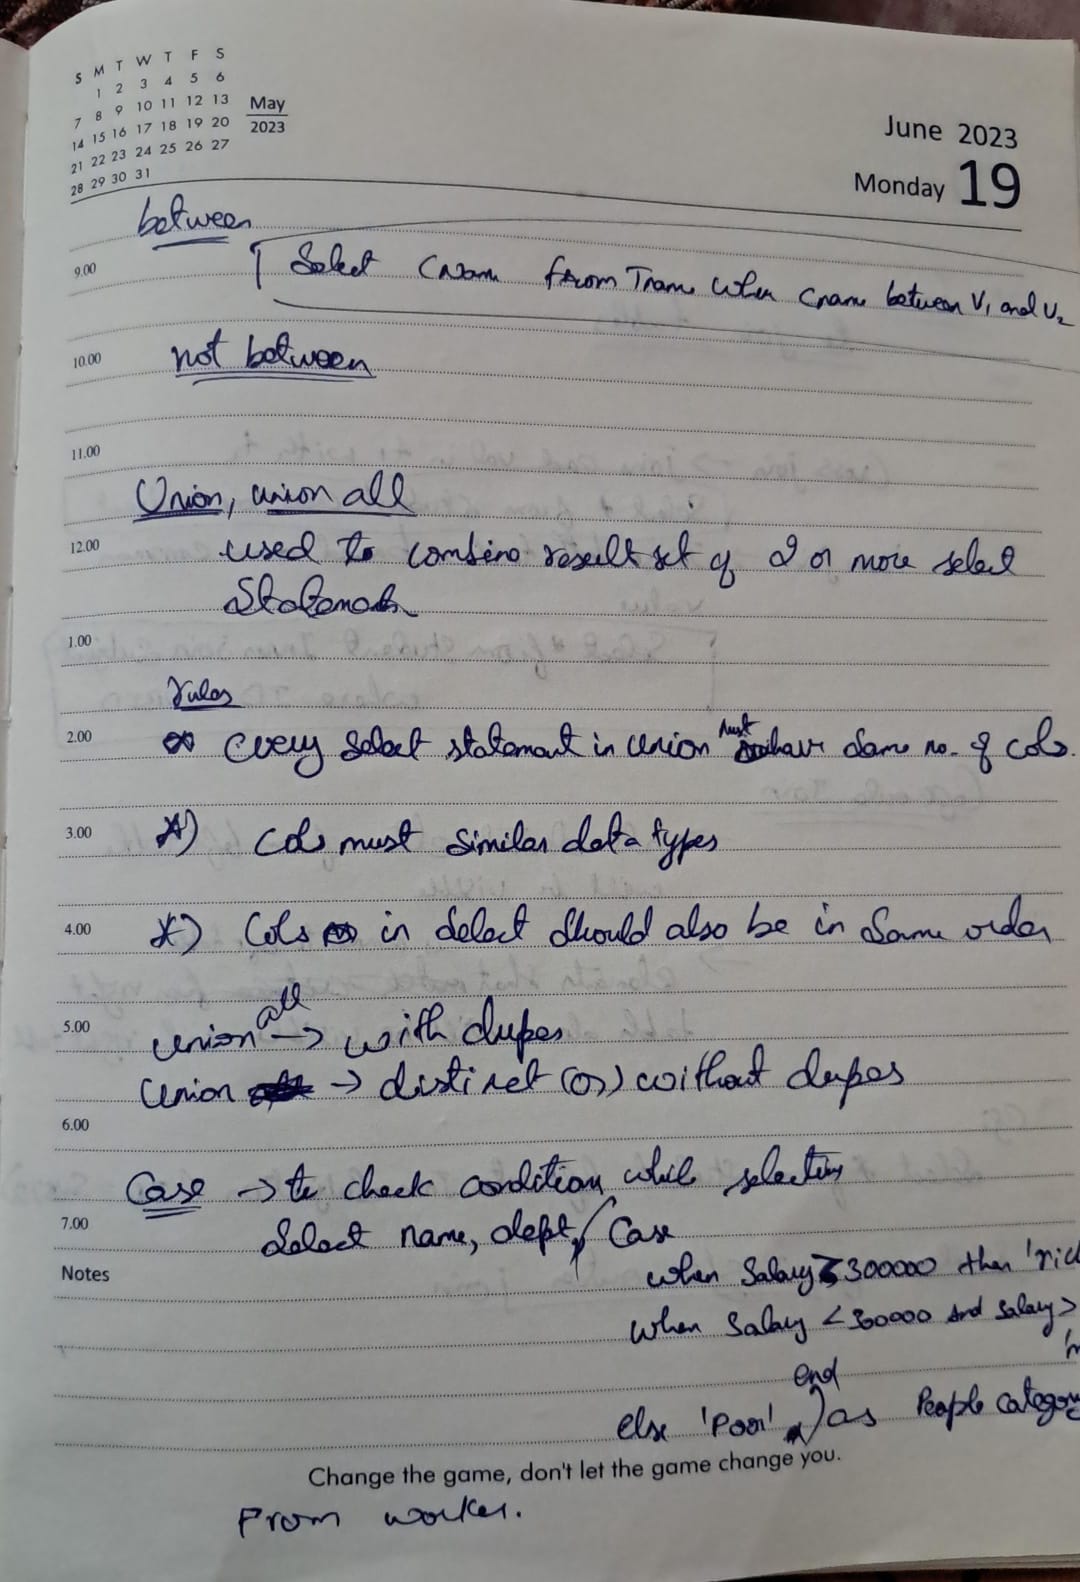 S M T W T F S
1 2 3 4 5 6
7 8 9 10 11 12 13
14 15 16 17 18 19 20
21 22 23 24 25 26 27
28 29 30 31
May
2023
June 2023
Monday 19
between
9.00
Select CName from Tname when cname between V1 and V2
10.00 not between
11.00
Union, union all
12.00 used to combine result set of 2 or more select
Statements
1.00
rules
2.00 every select statement in union must have same no. of cols.
3.00 *) Cols must similar data types
4.00 *) Cols in select should also be in same order
5.00 union all → with dupes
Union → distinct (or) without dupes
6.00
Case → to check condition while selecting
7.00 Select name, dept, (Case
Notes when Salary > 300000 then 'ric
when Salary < 300000 and salary >
'm
end
else 'Poor' ) as People category
Change the game, don't let the game change you.
From worker.